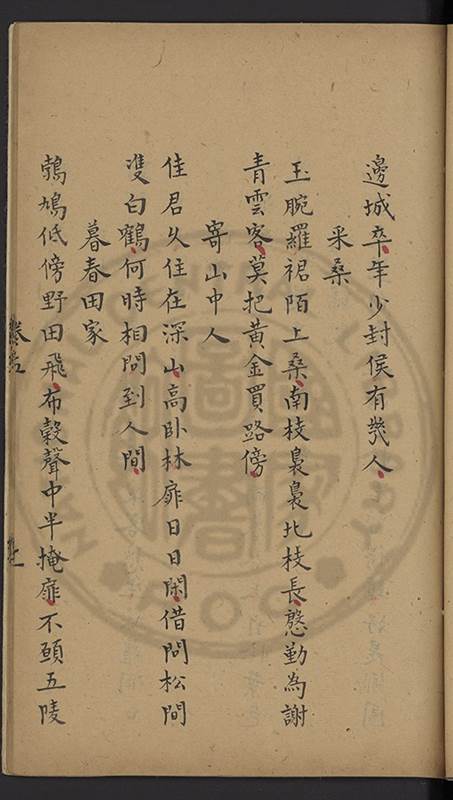 邊城卒年少封侯有幾人
采桑
玉腕羅裙陌上桑南枝裊裊北枝長慇勤為謝
青雲客莫把黃金買路傍
寄山中人
佳君久住在深山高卧林扉日日閑借問松間
雙白鶴何時相問到人間
暮春田家
鵓鳩低傍野田飛布穀聲中半掩扉不願五陵